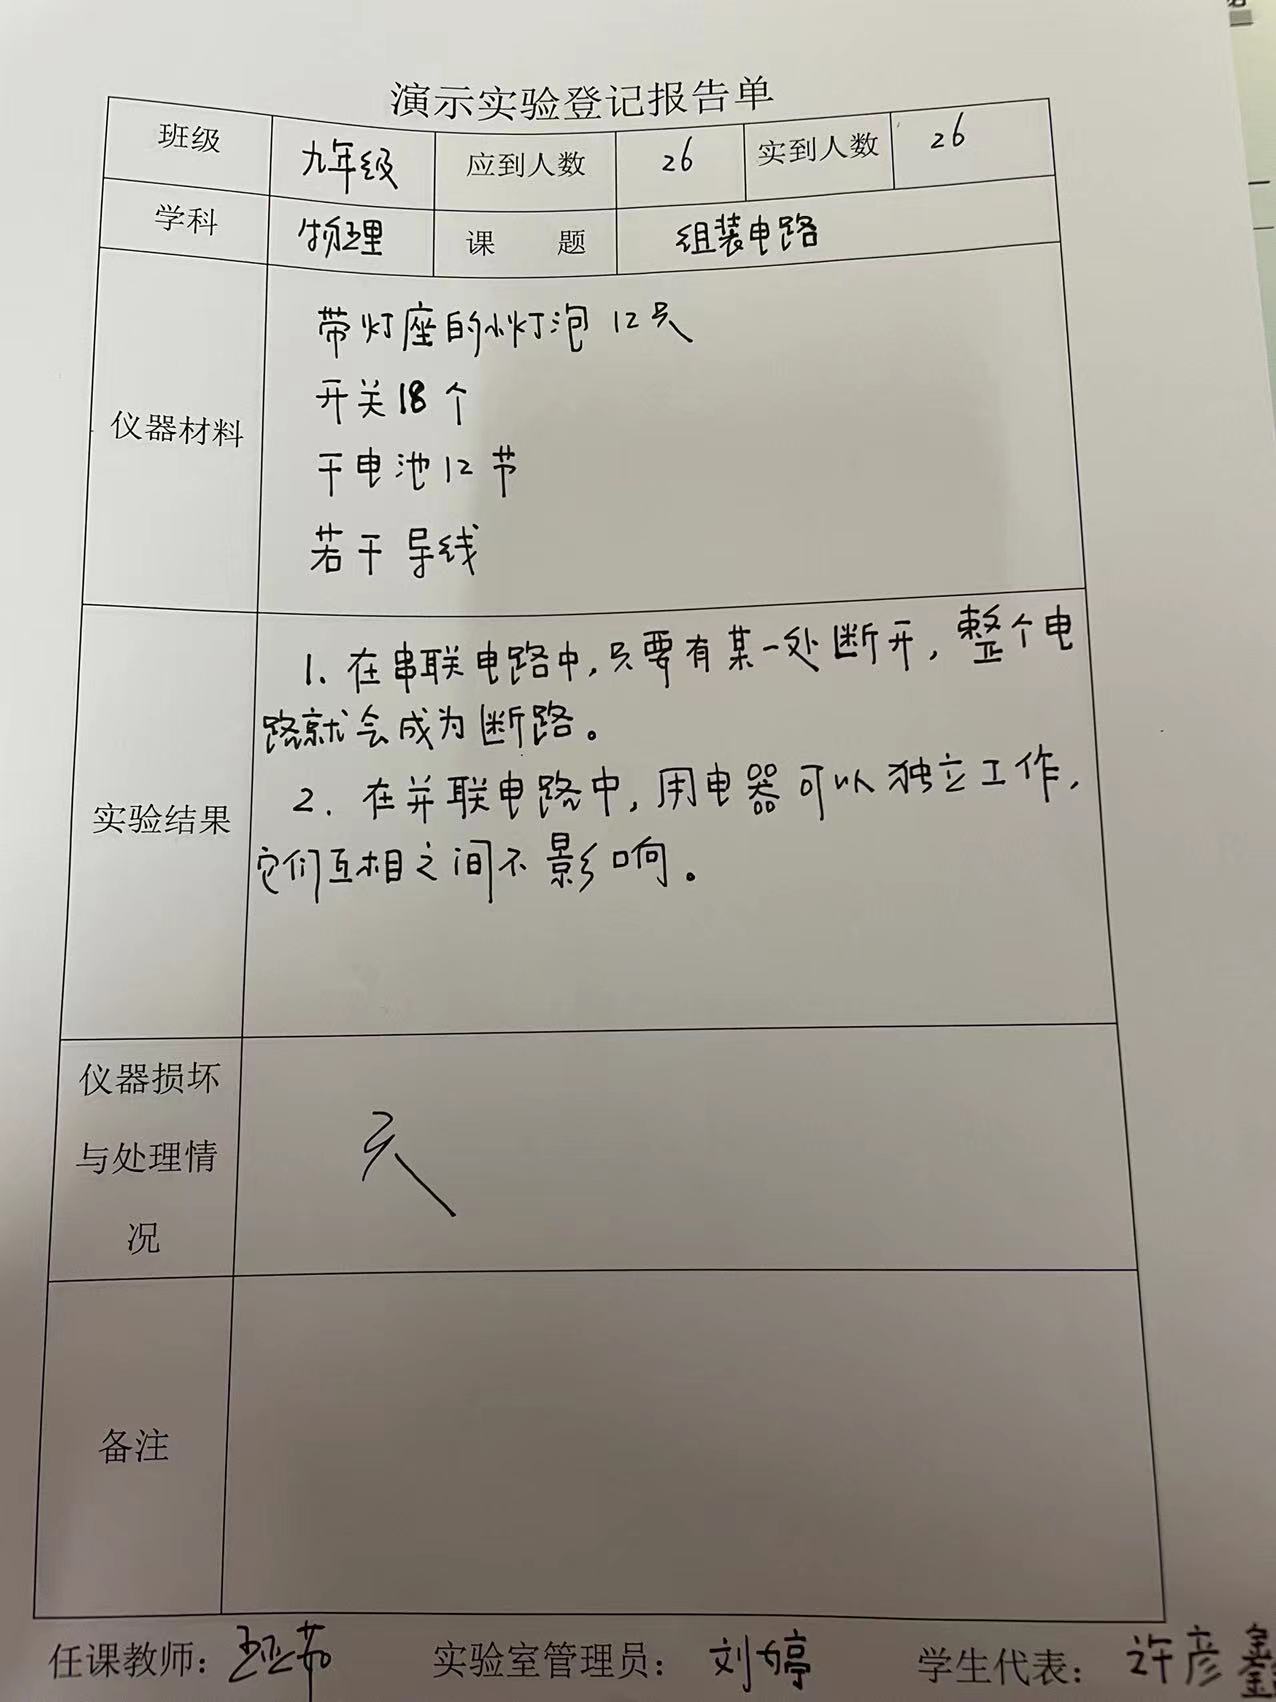 演示实验登记报告单
班级 九年级 应到人数 26 实到人数 26
学科 物理 课 题 组装电路
带灯座的小灯泡12只
开关18个
仪器材料
干电池12节
若干导线
1. 在串联电路中,只要有某一处断开,整个电
路就会成为断路。
2. 在并联电路中,用电器可以独立工作,
实验结果
它们互相之间不影响。
仪器损坏
与处理情
况
备注
任课教师: 实验室管理员: 刘婷 学生代表: 许彦鑫